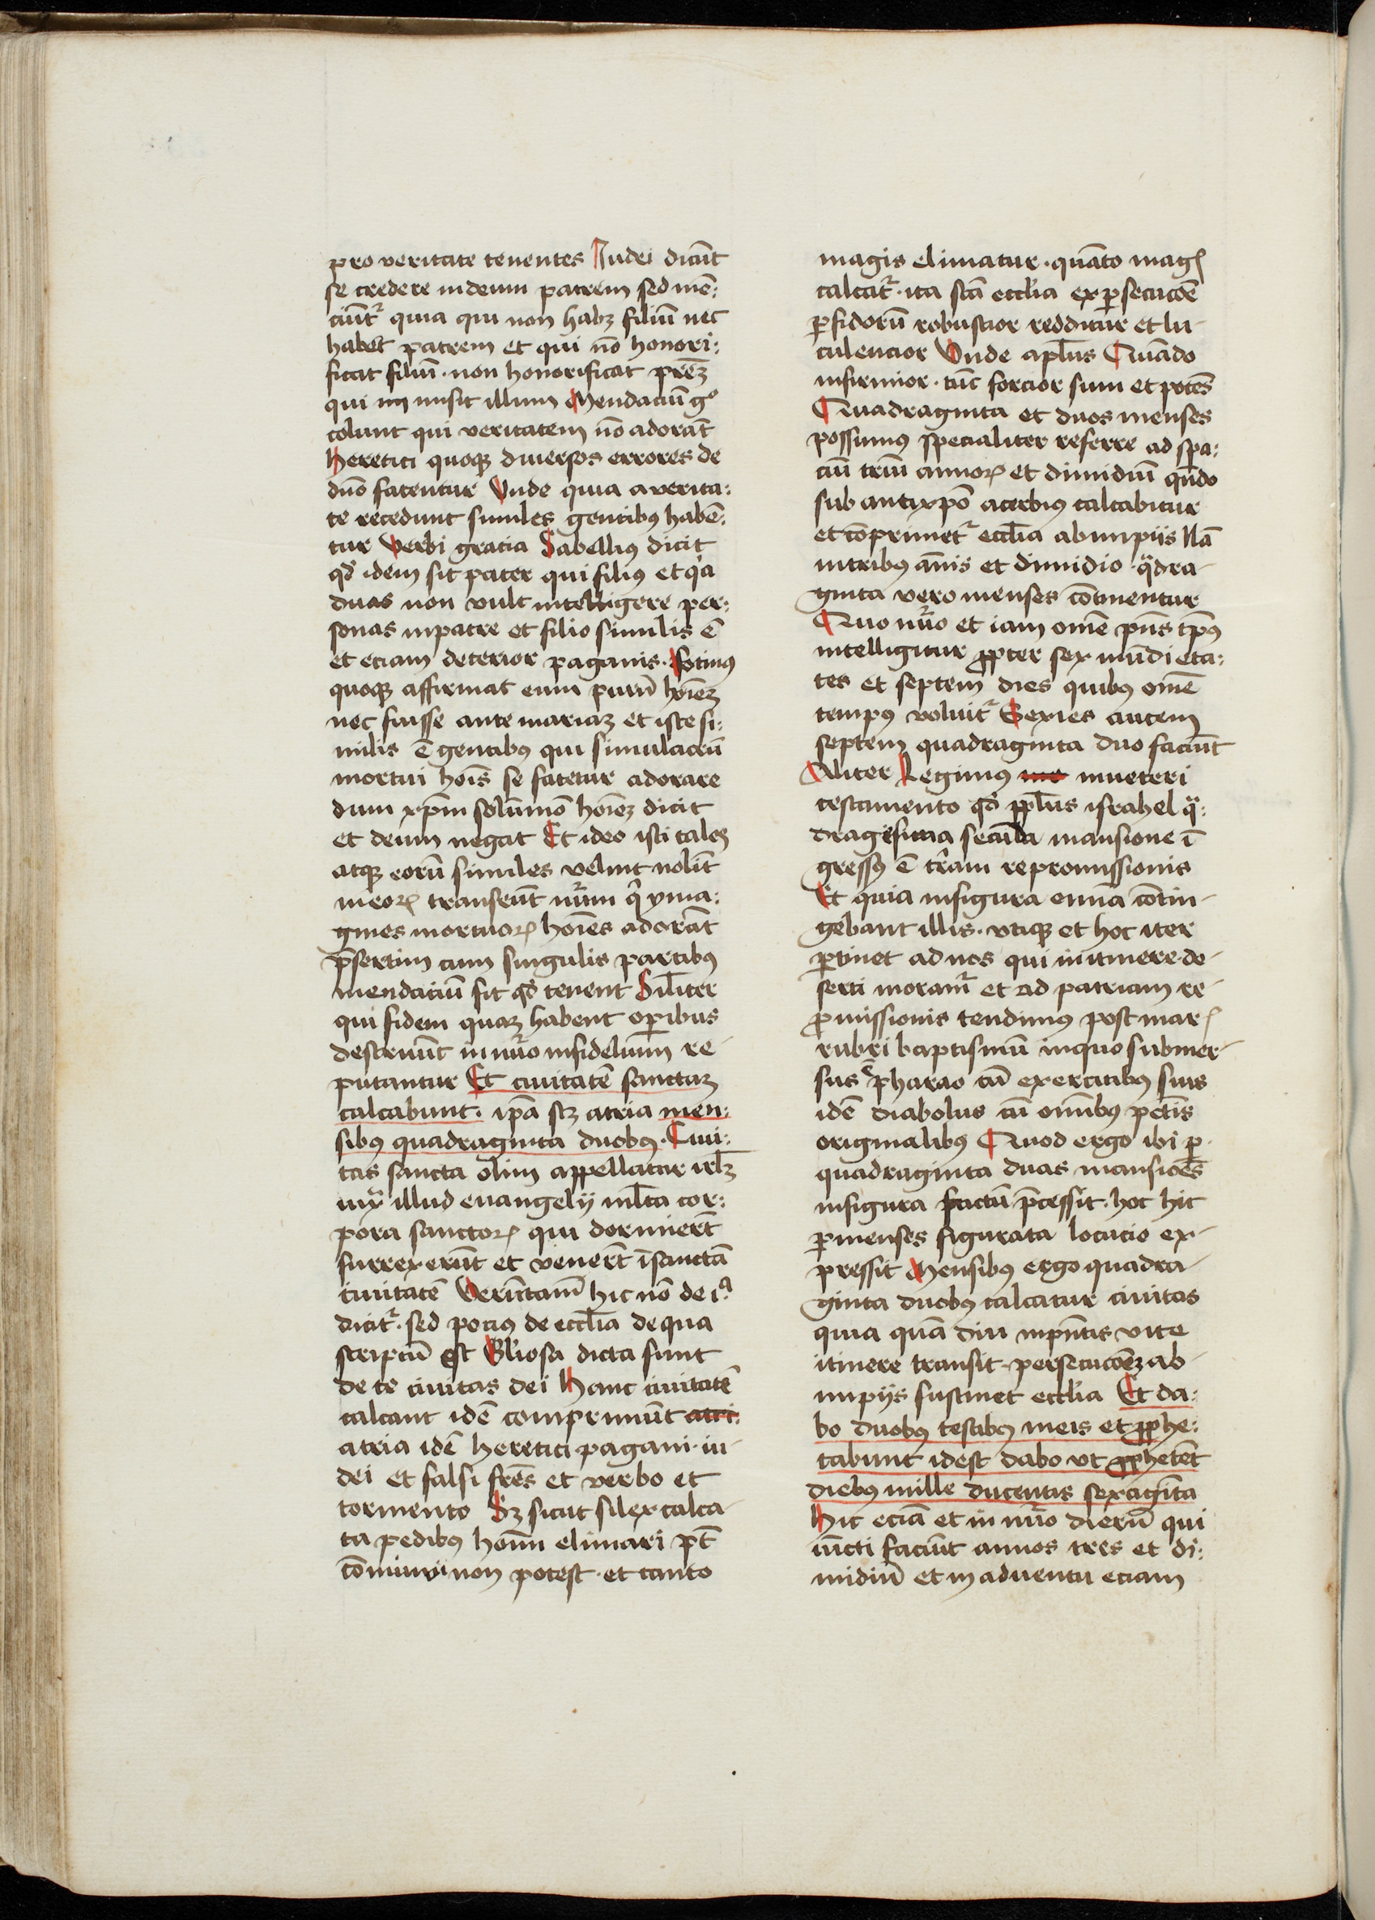 pro veritate tenentes Iudei dicūt
se credere in deum patrem sed mē⸗
ciūt᷑ quia qui non habꝫ filiū nec
habet patrem et qui nō honori⸗
ficat filiū · non honorificat p̄rēꝫ
qui misit illum Mendaciū gͦ
colunt qui veritatem nō adorāt
Heretici quoqꝫ diuersos errores de
duō fatentur Vnde quia a verita⸗
te recedunt similes gentibꝰ habē⸗
tur Verbi gracia Sabellius dicit
qd̾ idem sit pater qui filius et qͥa
duas non vult intelligere per⸗
sonas in patre et filio similis ē
et eciam deterior paganis · Fotinꝰ
quoqꝫ affirmat eum purū hoīeꝫ
nec fuisse ante mariaꝫ et iste si⸗
milis ē gentibꝰ qui simulacrū
mortui hoīs se fatetur adorare
dum xp̄m solūmō hoīeꝫ dicit
et deum negat Et ideo isti tales
atqꝫ eorū similes velint nolīt
in eoꝝ transeūt nūm qͥ yma⸗
gines mortuoꝝ hoīes adorāt
p̄sertim cum singulis partibꝰ
mendaciū sit qd̾ tenent Sil̄iter
qui fidem quaꝫ habent oꝑibus
destruūt in nūo infidelium re-
putantur Et ciuitatē sanctaꝫ
calcabunt · ip̄a scꝫ atria men⸗
sibꝰ quadraginta duobꝰ · Ciui⸗
tas sancta olim appellatur irl̄ꝫ
iuxͣ illud euangelij ml̄ta cor⸗
pora sanctoꝝ qui dormierūt
surrexerūt et venerūt ī sanctā
ciuitatē Verūtam̄ hic nō de iͣ
dicit᷑ · sed pocius de eccl̄ia de qua
scriptū est Gl̄iosa dicta sunt
de te ciuitas dei Hanc ciuitatē
calcant idē comprimūt atri⸗
atria idē heretici pagani · iu-
dei et falsi frēs et verbo et
tormento Sꝫ sicut silex calca-
ta pedibꝰ hoīm elimari pt̄
cōminui non potest · et tanto
magis elimatur · quāto magꝭ
calcat᷑ · ita scā eccl̄ia ex ꝑsecucōe
ꝑfidorū robustior redditur et lu-
culencior Vnde apl̄us Quādo
infirmior · tūc forcior sum et potēs
Quadraginta et duos menses
possumꝰ specialiter referre ad spa⸗
ciū triū annoꝝ et dimidiū qn̄do
sub antixp̄o acerbius calcabitur
et cōprimet᷑ eccl̄ia ab impijs Nā
in tribꝰ ānis et dimidio qͣdra-
ginta vero menses cōtinentur
Quo nūo et iam om̄e p̄ns tp̄us
intelligitur ꝓpter sex mūdi eta⸗
tes et septem dies quibus om̄e
tempꝰ voluit᷑ Sexies autem
septem quadraginta duo faciūt
Aliter Legimus me in ueteri
testamento qd̾ ppl̄us israhel qͣ⸗
dragesima secūda mansione ī
gressꝰ ē t̄ram repromissionis
Et quia in figura ennā cōtin-
gebant illis · vtiqꝫ et hoc iter
ꝑtinet ad nos qui in itinere de-
serti moram᷑ et ad patriam re-
ꝓmissionis tendimꝰ post marꝭ
rubri baptismū in quo submer-
sus pharao cū exercitibꝰ suis
idē diabolus cū om̄ibꝰ pctīs
originalibꝰ Quod ergo ibi ꝑ
quadraginta duas mansiōēs
in figura factū p̄cessit · hoc hic
ꝑ menses figurata locucio ex-
pressit Mensibus ergo quadra-
ginta duobꝰ calcatur ciuitas
quia quā diu in p̄ntis vite
itinere transit · persecucōeꝫ ab
impijs sustinet eccl̄ia Et da⸗
bo duobꝰ testibꝰ meis et ꝓphe⸗
tabunt id est dabo vt ꝓphetēt
diebus mille ducentis sexagīta
Hic eciā et in nūo dierū qui
iūcti faciūt annos tres et di⸗
midiū et in aduentu eciam